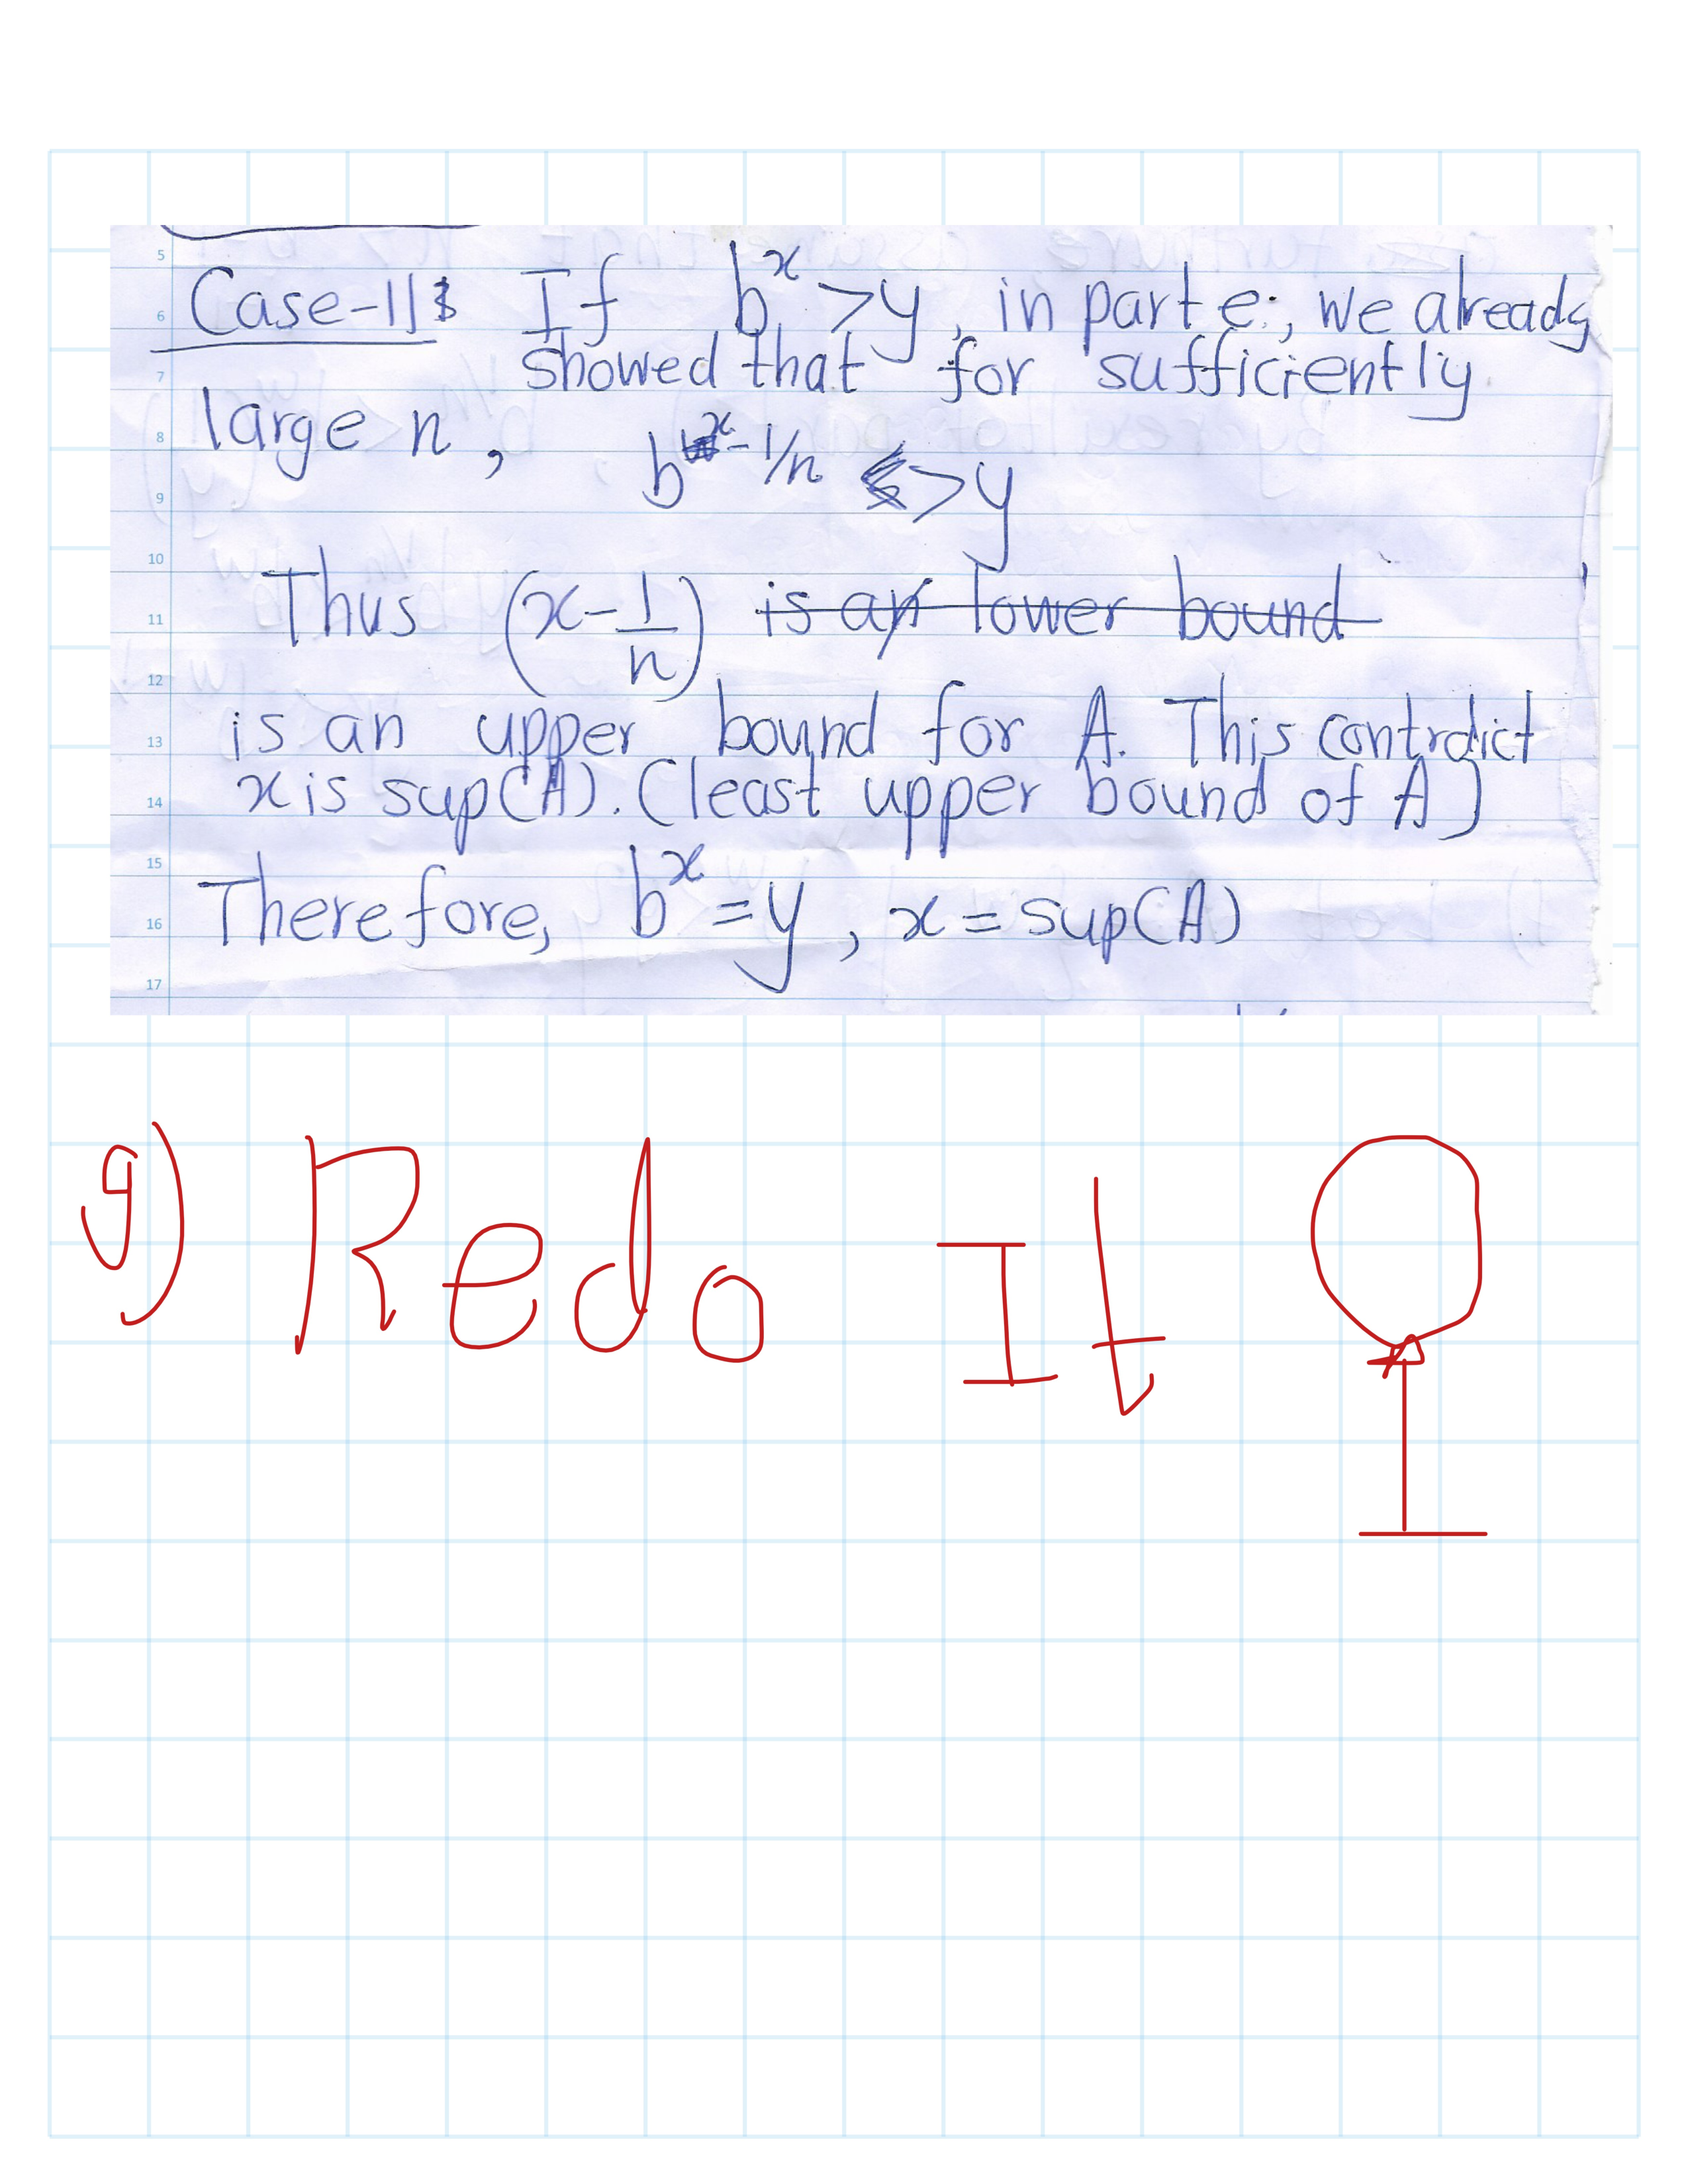 Case-II: If b^x > y, in part e., we already
showed that for sufficiently
large n,
b^{x-1/n} > y
Thus (x - 1/n) is an lower bound
is an upper bound for A. This contrdict
x is sup(A). (least upper bound of A)
Therefore, b^x = y, x = sup(A)
g) Redo It
5
6
7
8
9
10
11
12
13
14
15
16
17